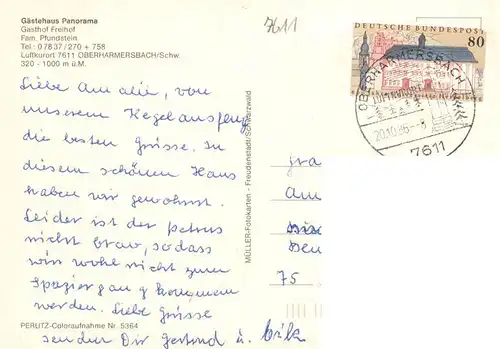 Gästehaus Panorama
Gasthof Freihof
Fam. Pfundstein
Tel. 0 78 37 / 270 + 758
Luftkurort 7611 OBERHARMERSBACH/Schw.
320 - 1000 m ü.M.
7611
DEUTSCHE BUNDESPOST
80
OBERHARMERSBACH
LUFTKURORT
20.10.86.-8
7611
Liebe Amalie, von
unserem Kegelausflug
die besten Grüsse. In
diesem schönen Haus
haben wir gewohnt.
Leider ist der Petrus
nicht brav, sodass
wir wohl nicht zum
Spaziergang kommen
werden. Liebe Grüsse
senden Dir Gertrud u. Erik
MÜLLER-Fotokarten - Freudenstadt/Schwarzwald
Am
75
PERUTZ-Coloraufnahme Nr. 5364